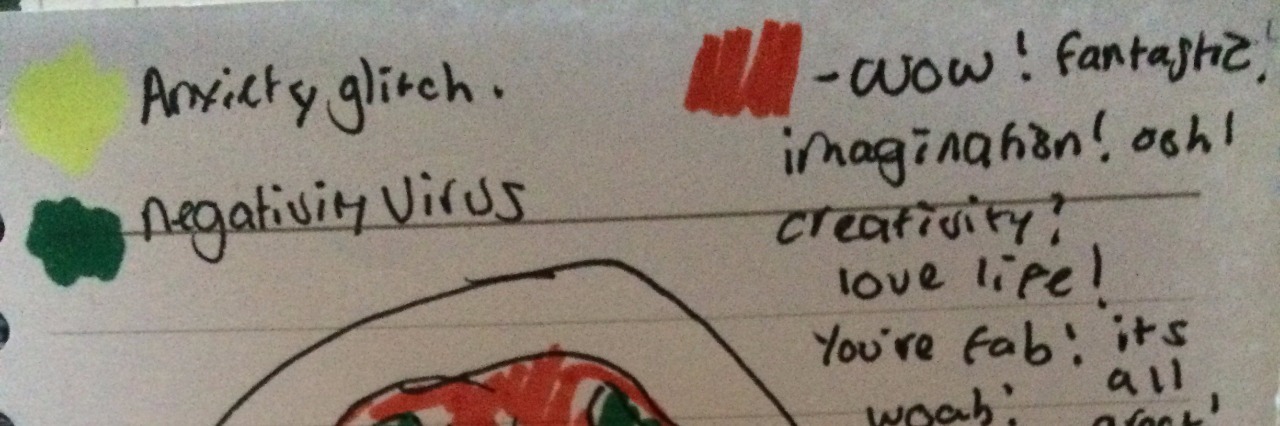 Anxiety glitch.
negativity virus
- wow! fantastic!
imagination! ooh!
creativity!
love life!
You're fab! its
all
woah! great!